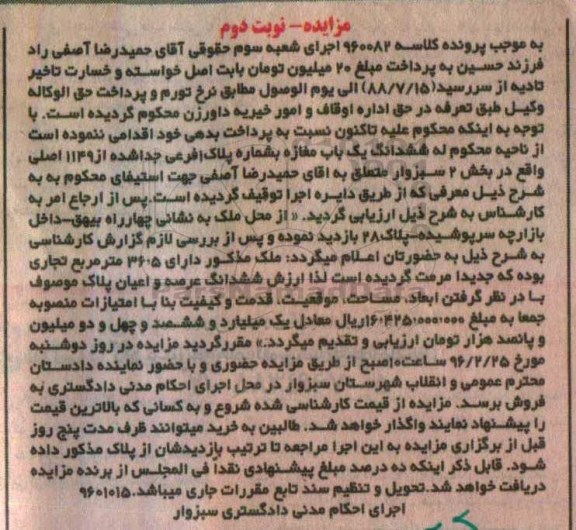 مزایده- نوبت دوم
به موجب پرونده کلاسه ۹۶۰۰۸۲ اجرای شعبه سوم حقوقی آقای حمیدرضا آصفی راد
فرزند حسین به پرداخت مبلغ ۲۰ میلیون تومان بابت اصل خواسته و خسارت تاخیر
تادیه از سررسید(۸۸/۷/۱۵) الی یوم الوصول مطابق نرخ تورم و پرداخت حق الوکاله
وکیل طبق تعرفه در حق اداره اوقاف و امور خیریه داورزن محکوم گردیده است. با
توجه به اینکه محکوم علیه تاکنون نسبت به پرداخت بدهی خود اقدامی ننموده است
از ناحیه محکوم له ششدانگ یک باب مغازه بشماره پلاک۱فرعی جداشده از۱۱۴۹ اصلی
واقع در بخش ۲ سبزوار متعلق به اقای حمیدرضا آصفی جهت استیفای محکوم به به
شرح ذیل معرفی که از طریق دایره اجرا توقیف گردیده است.پس از ارجاع امر به
کارشناس به شرح ذیل ارزیابی گردید. « از محل ملک به نشانی چهارراه بیهق-داخل
بازارچه سرپوشیده-پلاک۲۸ بازدید نموده و پس از بررسی لازم گزارش کارشناسی
به شرح ذیل به حضورتان اعلام میگردد: ملک مذکور دارای ۳۶.۵ مترمربع تجاری
بوده که جدیدا مرمت گردیده است لذا ارزش ششدانگ عرصه و اعیان پلاک موصوف
با در نظر گرفتن ابعاد، مساحت، موقعیت، قدمت و کیفیت بنا با امتیازات منصوبه
جمعا به مبلغ ۱۶.۴۲۵.۰۰۰.۰۰۰ریال معادل یک میلیارد و ششصد و چهل و دو میلیون
و پانصد هزار تومان ارزیابی و تقدیم میگردد.» مقررگردید مزایده در روز دوشنبه
مورخ ۹۶/۲/۲۵ ساعت۱۰صبح از طریق مزایده حضوری و با حضور نماینده دادستان
محترم عمومی و انقلاب شهرستان سبزوار در محل اجرای احکام مدنی دادگستری به
فروش برسد. مزایده از قیمت کارشناسی شده شروع و به کسانی که بالاترین قیمت
را پیشنهاد نمایند واگذار خواهد شد. طالبین به خرید میتوانند ظرف مدت پنج روز
قبل از برگزاری مزایده به این اجرا مراجعه تا ترتیب بازدیدشان از پلاک مذکور داده
شود. قابل ذکر اینکه ده درصد مبلغ پیشنهادی نقدا فی المجلس از برنده مزایده
دریافت خواهد شد.تحویل و تنظیم سند تابع مقررات جاری میباشد.۹۶۰۱۰۱۵
اجرای احکام مدنی دادگستری سبزوار